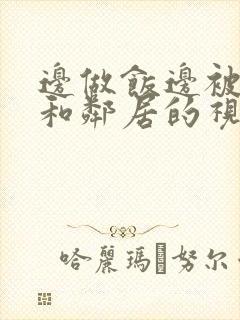 邊做飯邊被
和鄰居的視
哈麗瑪 努尔